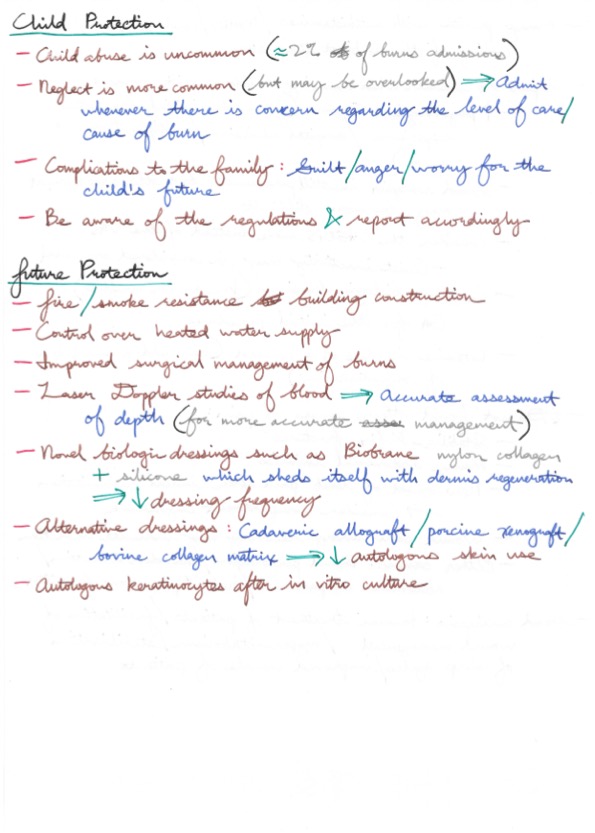 Child Protection
– Child abuse is uncommon (≈2% of burns admissions)
– Neglect is more common (but may be overlooked) ⟹ Admit
whenever there is concern regarding the level of care/
cause of burn
– Complications to the family: Guilt/anger/worry for the
child's future
– Be aware of the regulations & report accordingly
Future Protection
– fire/smoke resistance building construction
– Control over heated water supply
– Improved surgical management of burns
– Laser Doppler studies of blood ⟹ Accurate assessment
of depth (for more accurate management)
– Novel biologic dressings such as Biobrane nylon collagen
+ silicone which sheds itself with dermis regeneration
⟹ ↓ dressing frequency
– Alternative dressings: Cadaveric allograft/porcine xenograft/
bovine collagen matrix ⟹ ↓ autologous skin use
– Autologous keratinocytes after in vitro culture